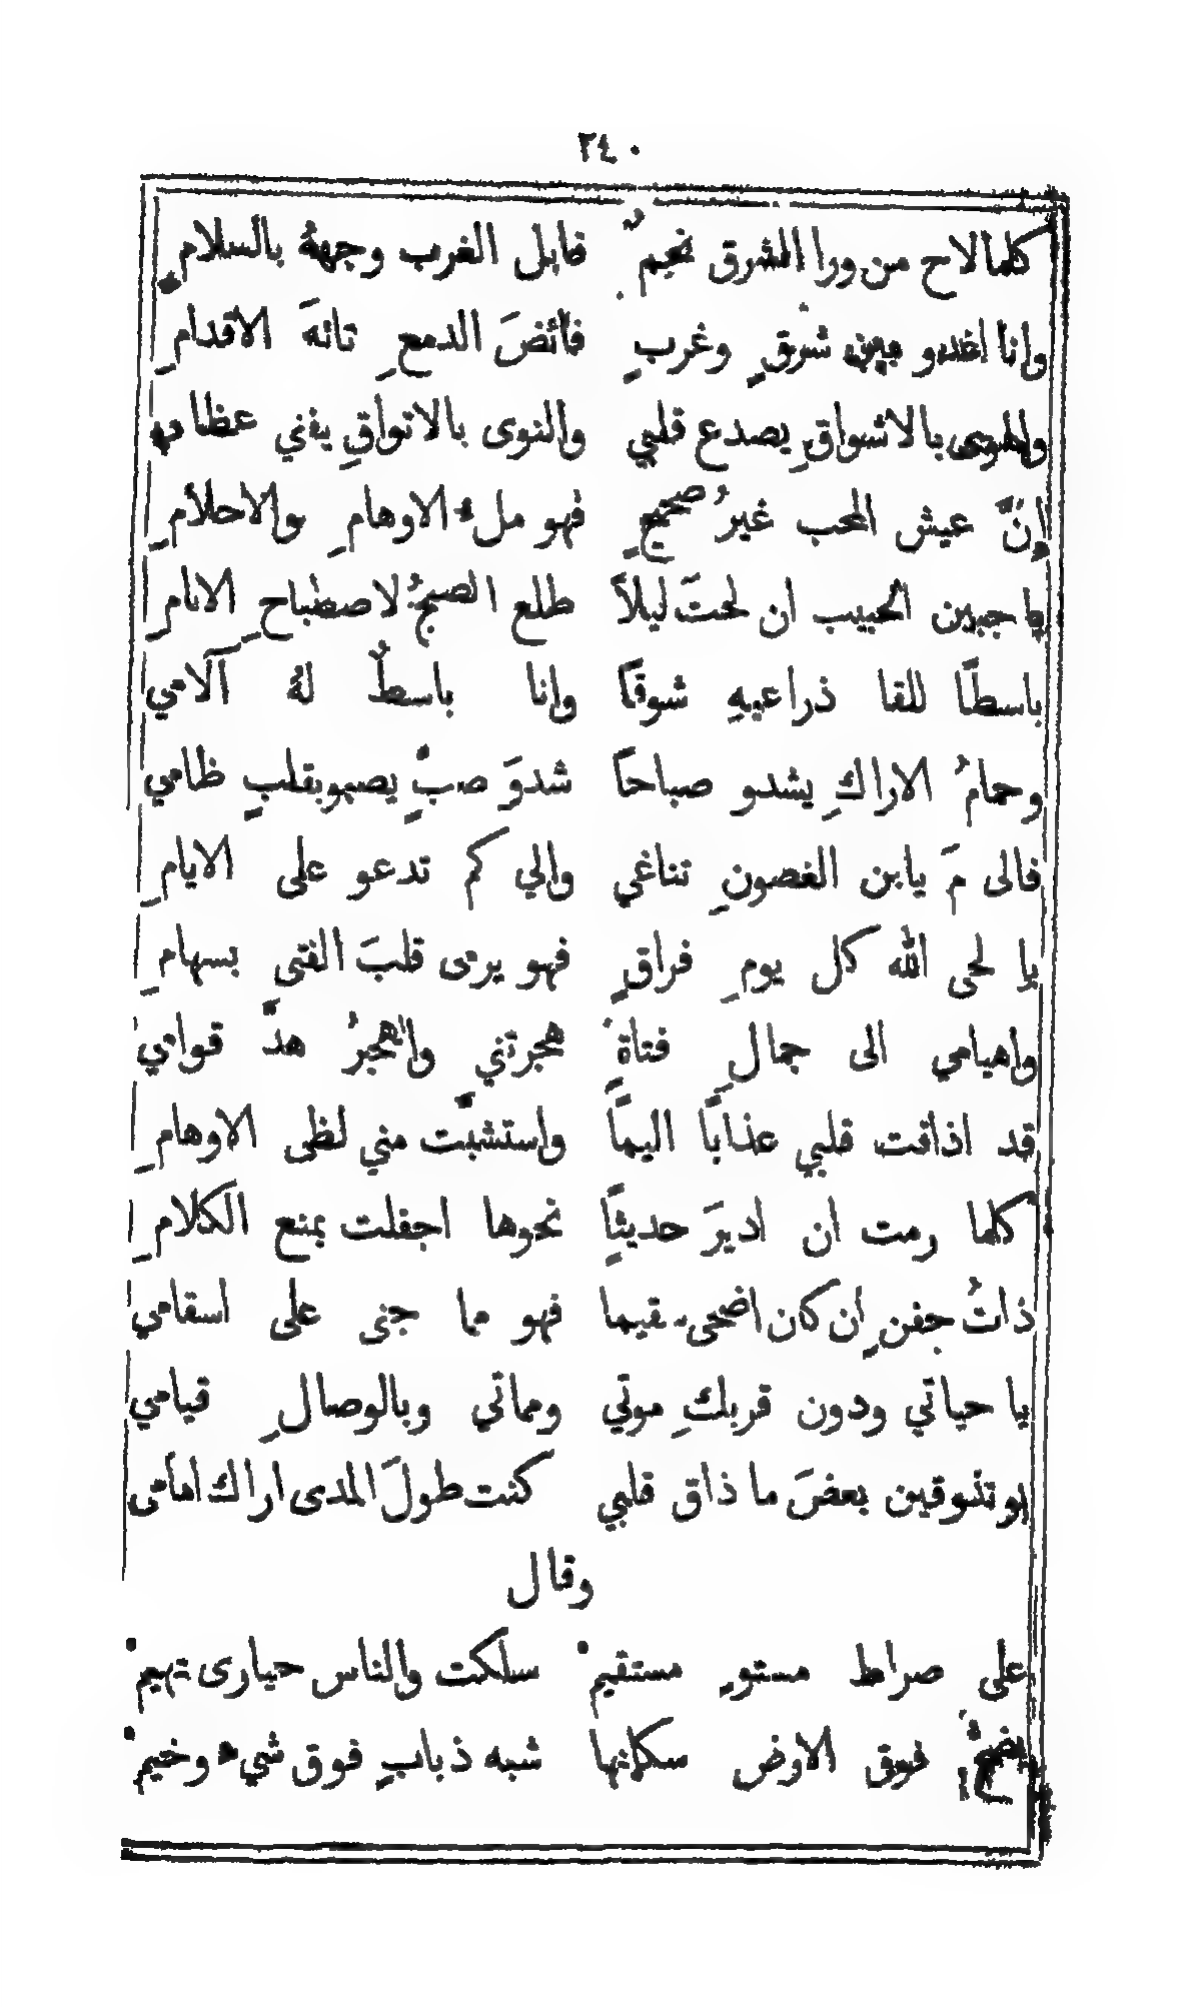 ٢٤٠
كلما لاح من ورا المشرق نجيمٌ قابل الغرب وجههُ بالسلامِ
وانا اغدو بين شرقٍ وغربٍ فائضَ الدمعِ تائهَ الاقدامِ
والهوى بالاشواقِ يصدع قلبي والنوى بالاتواقِ يفني عظامي
إنَّ عيش المحب غيرُ صحيحٍ فهو ملء الاوهامِ والاحلامِ
يا جبين الحبيب ان لحتَ ليلاً طلع الصبحُ لاصطباحِ الانامِ
باسطًا للقا ذراعيهِ شوقًا وانا باسطٌ لهُ آلامي
وحمامُ الاراكِ يشدو صباحًا شدوَ صبٍّ يصبو بقلبٍ ظامي
فالى مَ يابن الغصونِ تناغي والي كم تدعو على الايامِ
يا لحى الله كل يومِ فراقٍ فهو يرمى قلبَ الفتى بسهامِ
واهيامي الى جمالِ فتاةٍ هجرتني والهجرُ هدَّ قوامي
قد اذاقت قلبي عذابًا اليمًا واستشبَّت مني لظى الاوهامِ
كلما رمت ان اديرَ حديثًا نحوها اجفلت بمنع الكلامِ
ذاتُ جفنٍ ان كان اضحى سقيما فهو مما جنى على اسقامي
يا حياتي ودون قربكِ موتي ومماتي وبالوصالِ قيامي
لو تذوقين بعضَ ما ذاق قلبي كنت طولَ المدى اراك امامى
وقال
على صراط مستوٍ مستقيمْ سلكت والناس حيارى تهيمْ
يضجُّ فوق الارض سكانها شبه ذبابٍ فوق شيء وخيمْ